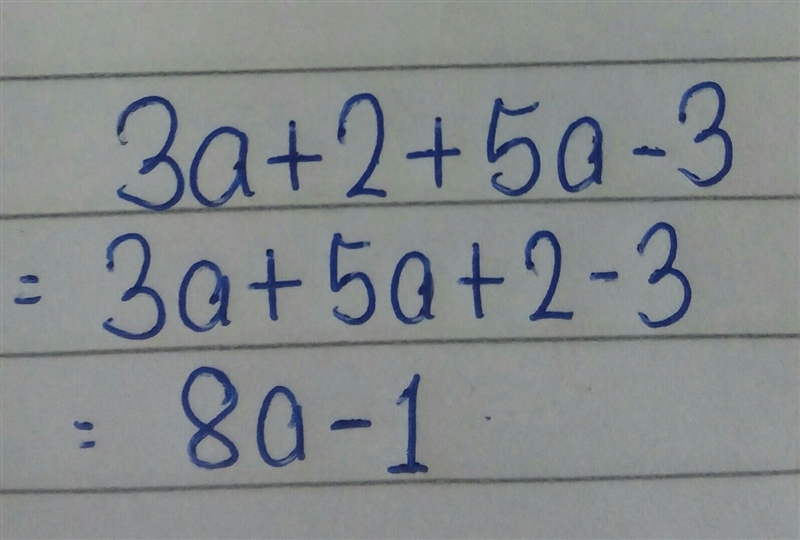 3a+2+5a-3
= 3a+5a+2-3
= 8a-1